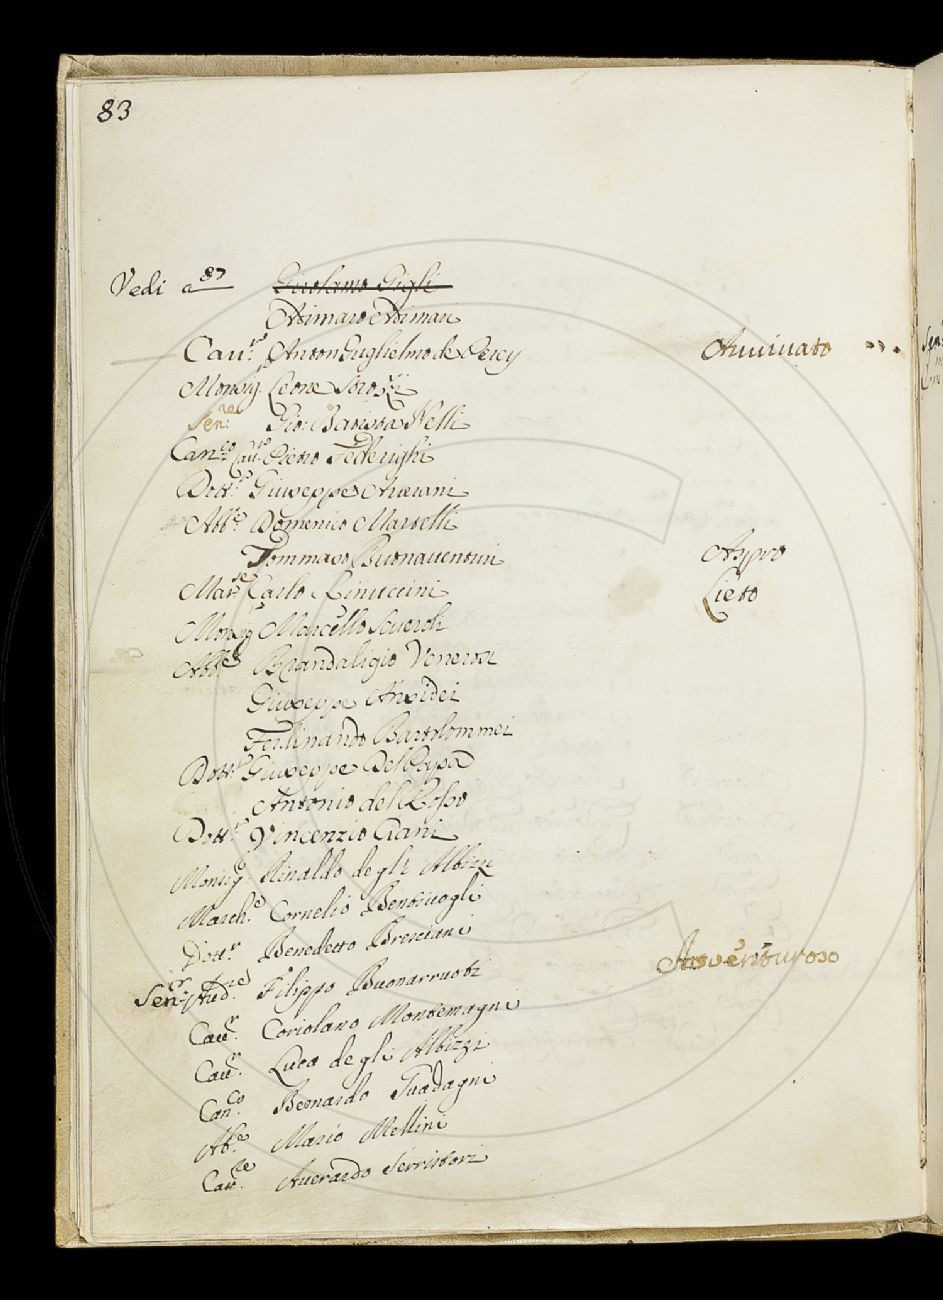 83
Vedi a 87 Girolamo Gigli
Adimaro Adimari
Cau.re Anton Guglielmo de Percy Auuinato
Monsig. Leone Strozzi
Sen.re Gio: Batista Nelli
Can.co Cau.re Pietro Federighi
Dott.re Giuseppe Auerani
Abb.e Domenico Martelli
Tommaso Buonauenturi Aspro
Mar.se Carlo Rinuccini Lieto
Monsig.r Marcello Seueroli
Abb.e Brandaligio Venerosi
Giuseppe Ansidei
Ferdinando Bartolommei
Dott.r Giuseppe Del Papa
Antonio del Rosso
Dott.r Vincenzio
Monsig.r Rinaldo degli Albizzi
March.e Cornelio Bentiuogli
Dott.r Benedetto Bresciani
Sen.or Aud.re Filippo Buonarruoti Avventuroso
Cau.r Coriolano Montemagni
Cau.r Luca degli Albizzi
Can.co Bernardo Guadagni
Ab.e Mario Mellini
Cau.re Auerardo Serristori